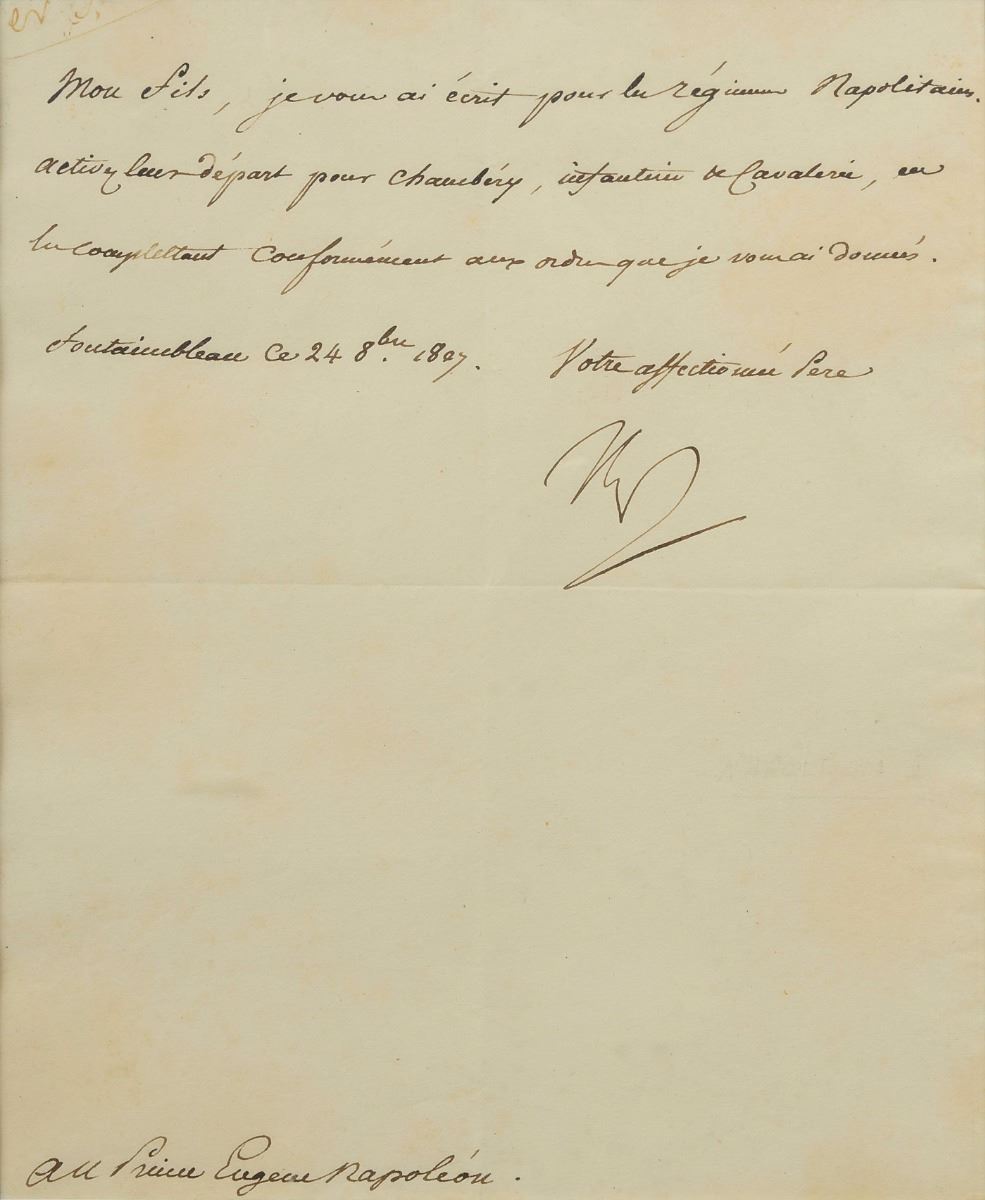 Mon fils, je vous ai écrit pour les régimens Napolitains.
activez leur départ pour chambéry, infanterie & Cavalerie, en
les complettant conformément aux ordres que je vous ai donnés.
fontainebleau ce 24 8.bre 1807.
Votre affectionné Pere
Np
au Prince Eugene Napoléon.